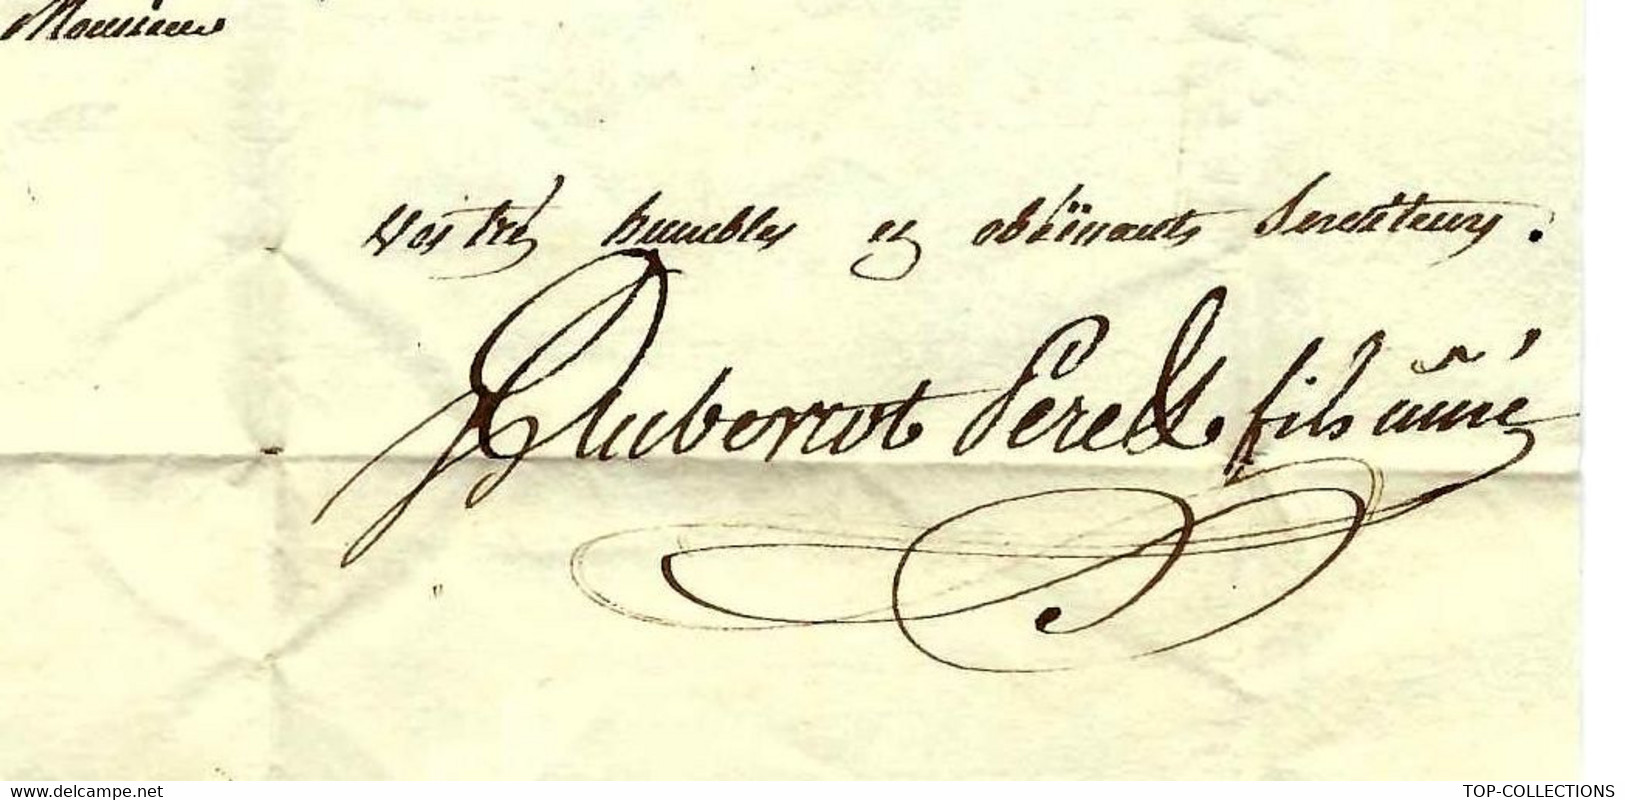 Monsieur
Vos très humbles et obéïssants Serviteurs.
Aubertot Pere & fils ainé
www.delcampe.net
TOP-COLLECTIONS